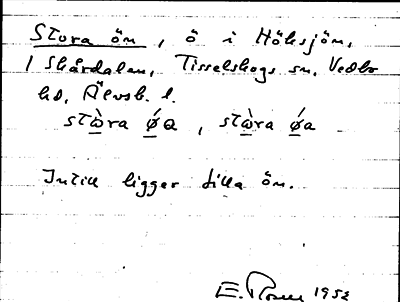 Stora ön, ö i Höksjön,
1 Skårdalen, Tisselskogs sn, Vedbo
hd, Älvsb. l.
stὼra ǿa, stὼra ǿa
Intill ligger Lilla ön.
E. Rosen 1952